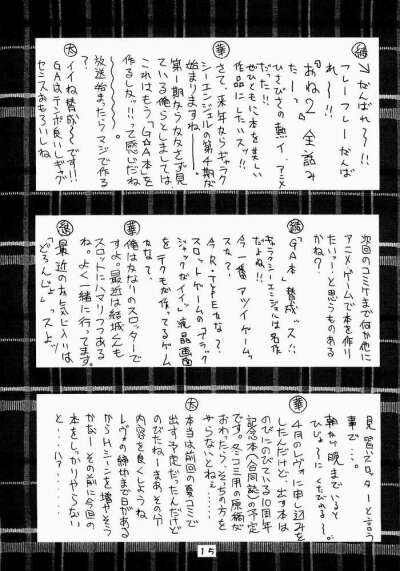 がんばれ〜〜!!
フレーフレーがんば
れ〜〜!!
「おね2」全話み
たーっ
ひさびさの熱いアニメ
だった!!
ぜひともこれ本を楽しい
作品にしたいスッ!!
華
さて、来年からギャラク
シーエンジェルの第4期が
始まりますね――。
第1期からかかさず見
ている俺らとしましては
これはもう、「G☆A本」を
作るしかッ!!って感じだね
?
放送始まったらマジで作る
太
イイね賛成〜〜です!!
GAはテンポ良いしギャグ
センスおもろいしね
「GA本」賛成ッス!!
ギャラクシーエンジェルは名作
だよね!!
今一番アツイゲームッ
スか?
今、R-TYPEかな?
スロットゲームの「ブラック
ジャックがイイッ」液晶画面
をテクモが作ってるゲーム
かな?
次回のコミケまで何か他に
アニメゲームで本を作り
たいっ!と思うものある
かね?
華
俺はかなりのスロッターで
すよ。最近は結城くんも
スロットにハマりつつある
ね。よく一緒に行ってます。
最近のお気に入りは、
「どろんじょ」っスよッ
見習スロッターと言う
事で…。
朝から晩までいると
ひじょ〜にくたびれる〜。
華
4月のレヴォに申し込みを
したんだけど、出す本は
のびにのびている10周年
記念本(合同誌)の予定
です。冬コミ用の原稿が
おわったら、そっちの方を
やらないとねぇ……
太
本当は前回の夏コミで
出す予定だったんだけど
のびたねーまあその分
内容を良くしようね
レヴォの締切まで日がある
からHシーンを増やそう
かなーその前に今回の
本をしっかりやらない
と…ハァ…
15